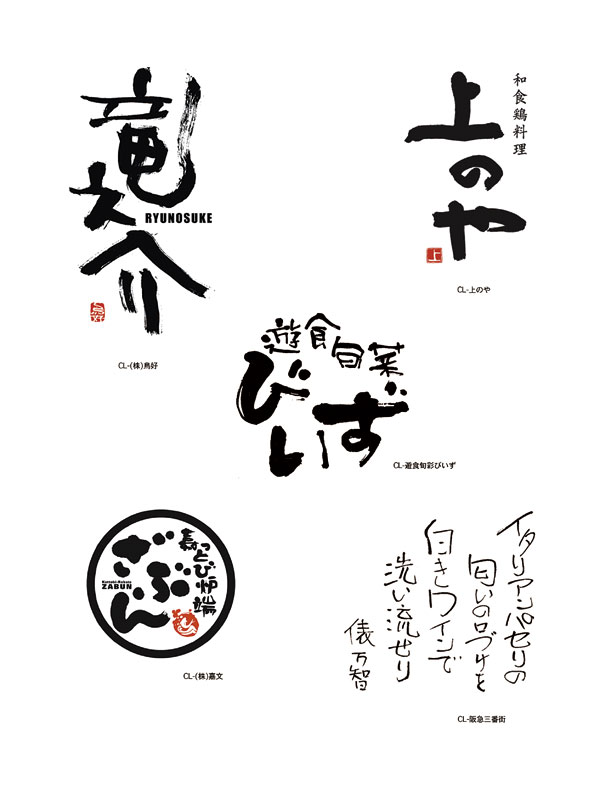 竜之介
RYUNOSUKE
鳥好
CL-(株)鳥好
和食鶏料理
上のや
上
CL-上のや
遊食旬菜
びいず
CL-遊食旬彩びいず
嘉っとび炉端
ざぶん
ZABUN
CL-(株)嘉文
イタリアンパセリの
匂いの口づけを
白きワインで
洗い流せり
俵万智
CL-阪急三番街